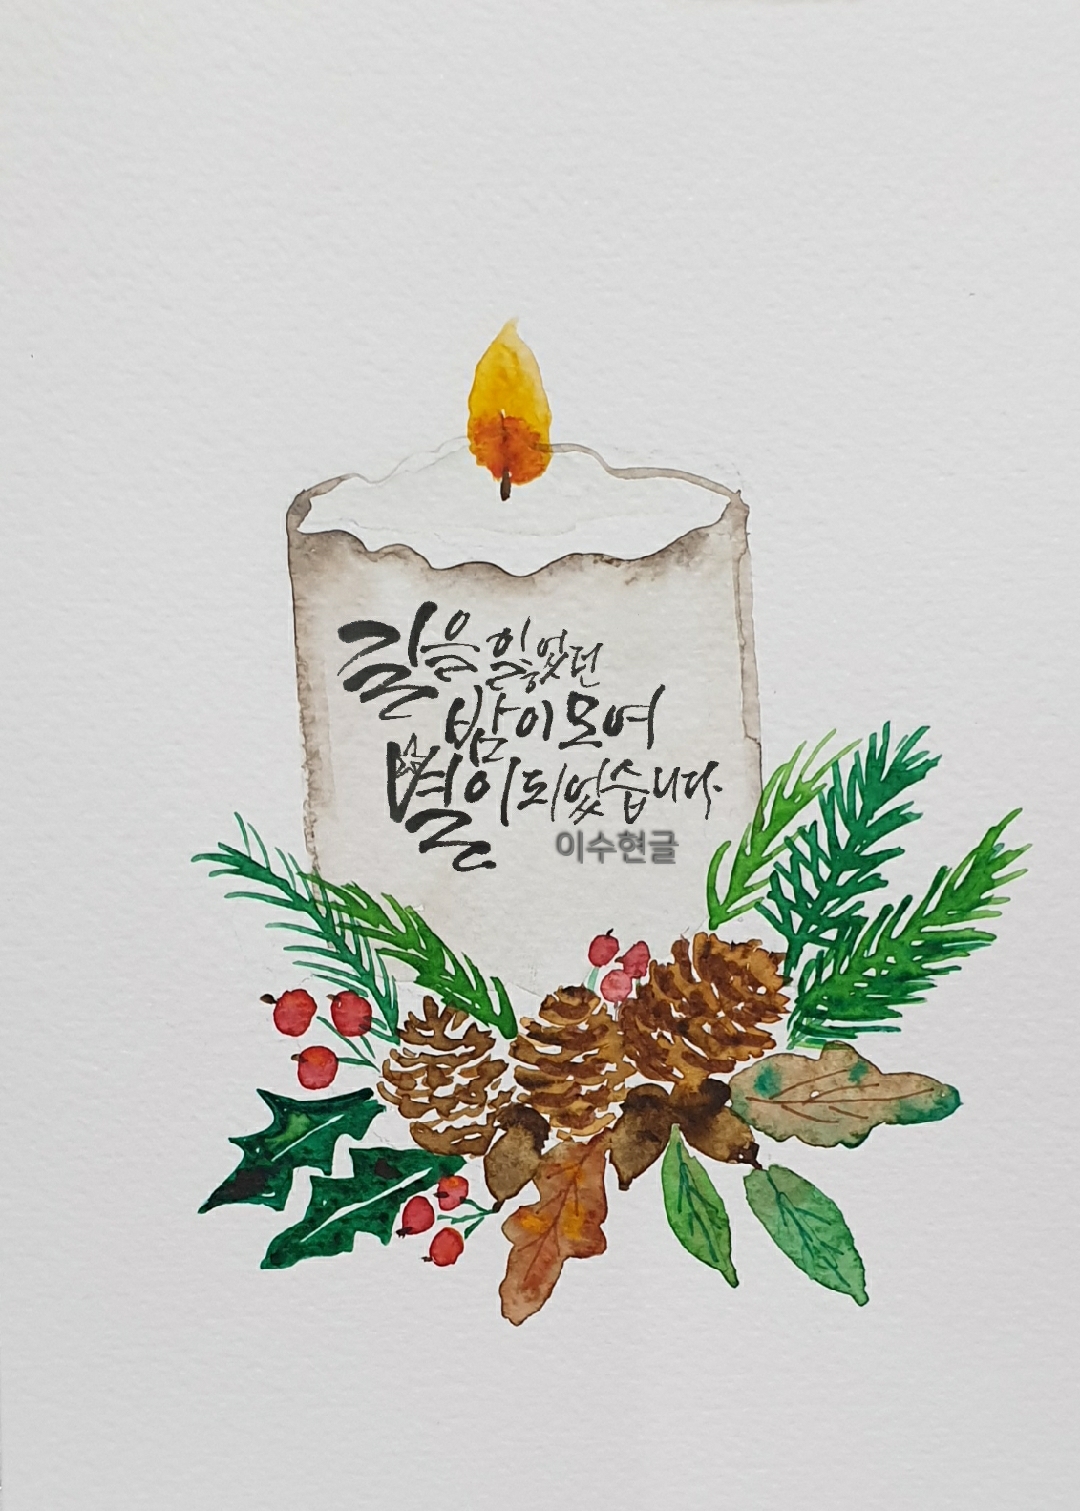 길을 잃었던
밤이 모여
별이 되었습니다.
이수현글